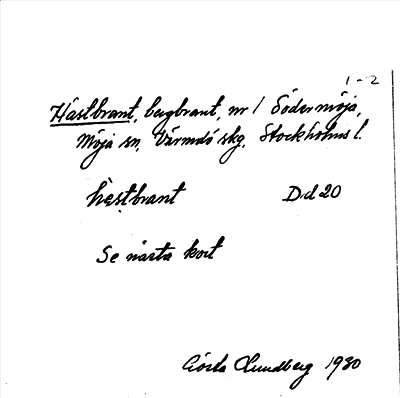 1-2
Hästbrant, bergbrant, nr 1 Södermöja,
Möja sn, Värmdö skg, Stockholms l.
hèstbrant Dd20
Se nästa kort
Gösta Lundberg 1930